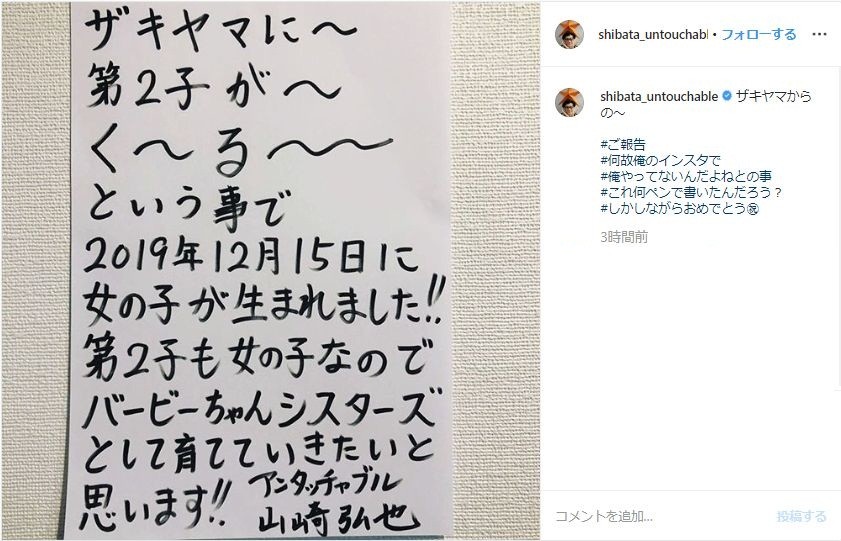 ザキヤマに〜
第2子が〜
く〜る〜〜
という事で
2019年12月15日に
女の子が生まれました!!
第2子も女の子なので
バービーちゃんシスターズ
として育てていきたいと
思います!!
アンタッチャブル
山崎弘也
shibata_untouchabl • フォローする
shibata_untouchable ザキヤマから
の〜
#ご報告
#何故俺のインスタで
#俺やってないんだよねとの事
#これ何ペンで書いたんだろう？
#しかしながらおめでとう㊗
3時間前
コメントを追加...
投稿する